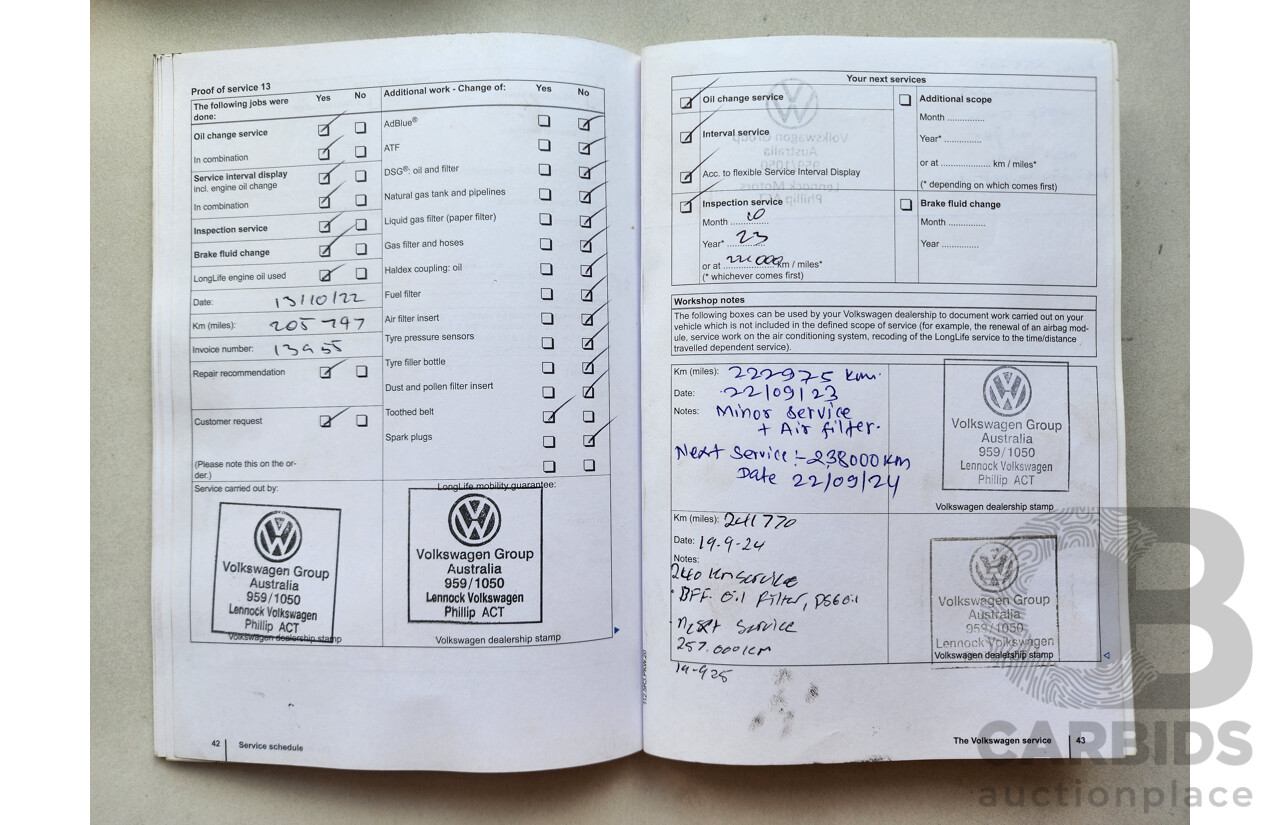 Proof of service 13
The following jobs were done: Yes No
Oil change service
In combination
Service interval display
incl. engine oil change
In combination
Inspection service
Brake fluid change
LongLife engine oil used
Date: 13/10/22
Km (miles): 205 797
Invoice number:
Repair recommendation
Customer request
(Please note this on the or-
der.)
Service carried out by:
Volkswagen Group
Australia
959/1050
Lennock Volkswagen
Phillip ACT
Volkswagen dealership stamp
Additional work - Change of: Yes No
AdBlue®
ATF
DSG®: oil and filter
Natural gas tank and pipelines
Liquid gas filter (paper filter)
Gas filter and hoses
Haldex coupling: oil
Fuel filter
Air filter insert
Tyre pressure sensors
Tyre filler bottle
Dust and pollen filter insert
Toothed belt
Spark plugs
LongLife mobility guarantee:
Volkswagen Group
Australia
959/1050
Lennock Volkswagen
Phillip ACT
Volkswagen dealership stamp
42 Service schedule
Your next services
Oil change service
Interval service
Acc. to flexible Service Interval Display
Inspection service
Month 10
Year* 23
or at km / miles*
(* whichever comes first)
Additional scope
Month ..............
Year* ..............
or at .................... km / miles*
(* depending on which comes first)
Brake fluid change
Month ..............
Year ..............
Workshop notes
The following boxes can be used by your Volkswagen dealership to document work carried out on your
vehicle which is not included in the defined scope of service (for example, the renewal of an airbag mod-
ule, service work on the air conditioning system, recoding of the LongLife service to the time/distance
travelled dependent service).
Km (miles): 222975 km.
Date: 22/09/23
Notes: Minor service
+ Air filter.
Next Service:- 238000 Km
Date 22/09/24
Volkswagen Group
Australia
959/1050
Lennock Volkswagen
Phillip ACT
Volkswagen dealership stamp
Km (miles): 241 770
Date: 19-9-24
Notes:
240 Km service
Oil Filter,
Next Service
257.000 KM
Volkswagen Group
Australia
959/1050
Lennock Volkswagen
Volkswagen dealership stamp
The Volkswagen service 43
CARBIDS
auctionplace